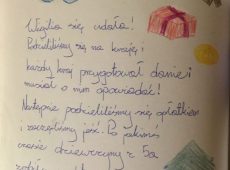 Wigilia się udała!
Podzieliliśmy się na kraje i
każdy kraj przygotował danie i
musiał o nim opowiadać!
Następnie podzieliliśmy się opłatkiem
i zaczęliśmy jeść. Po jakimś
czasie dziewczyny z 5a